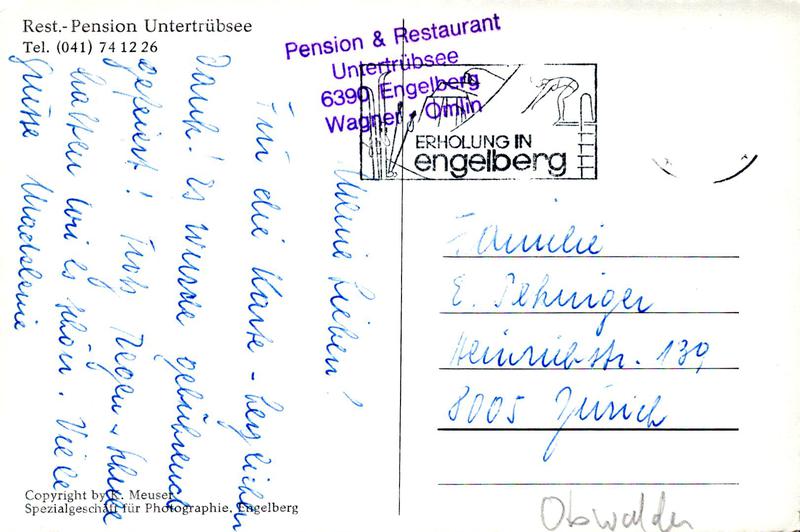 Rest.-Pension Untertrübsee
Tel. (041) 74 12 26
Pension & Restaurant
Untertrübsee
6390 Engelberg
Wagner - Omlin
ERHOLUNG IN
engelberg
Meine Lieben!
Für die Karte - herzlichen
Dank! Es wurde gebührend
gefeiert! Trotz Regen + Schnee
hatten wir es schön. Viele
Grüsse Madeleine
Familie
E.
Heinrichstr. 139
8005 Zürich
Copyright by K. Meuser
Spezialgeschäft für Photographie, Engelberg
Obwalden